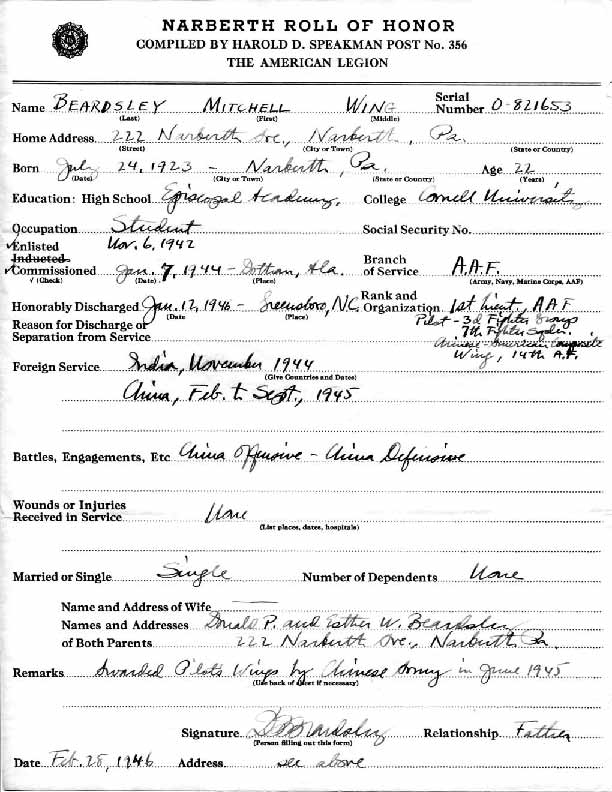 NARBERTH ROLL OF HONOR
COMPILED BY HAROLD D. SPEAKMAN POST No. 356
THE AMERICAN LEGION
Name BEARDSLEY MITCHELL WING Serial Number O-821653
(Last) (First) (Middle)
Home Address 222 Narberth Ave, Narberth, Pa.
(Street) (City or Town) (State or Country)
Born July 24, 1923 - Narberth, Pa. Age 22
(Date) (City or Town) (State or Country) (Years)
Education: High School Episcopal Academy, College Cornell University
Occupation Student Social Security No.
✓Enlisted Nov. 6, 1942
Inducted
✓Commissioned Jan. 7, 1944 - Dothan, Ala. Branch of Service A.A.F.
√ (Check) (Date) (Place) (Army, Navy, Marine Corps, AAF)
Honorably Discharged Jan. 12, 1946 - Greensboro, N.C. Rank and Organization 1st Lieut, AAF
(Date) (Place)
Pilot - 3d Fighter Group
Reason for Discharge or
Separation from Service
7th Fighter Sqdn.
Chinese-American Composite
Wing, 14th A.F.
Foreign Service India, November 1944
(Give Countries and Dates)
China, Feb. to Sept., 1945
Battles, Engagements, Etc China Offensive - China Defensive
Wounds or Injuries
Received in Service None
(List places, dates, hospitals)
Married or Single Single Number of Dependents None
Name and Address of Wife
Names and Addresses Donald P. and Esther W. Beardsley
of Both Parents 222 Narberth Ave., Narberth Pa.
Remarks Awarded Pilots Wings by Chinese Army in June 1945
(Use back of sheet if necessary)
Signature Beardsley Relationship Father
(Person filling out this form)
Date Feb. 28, 1946 Address see above